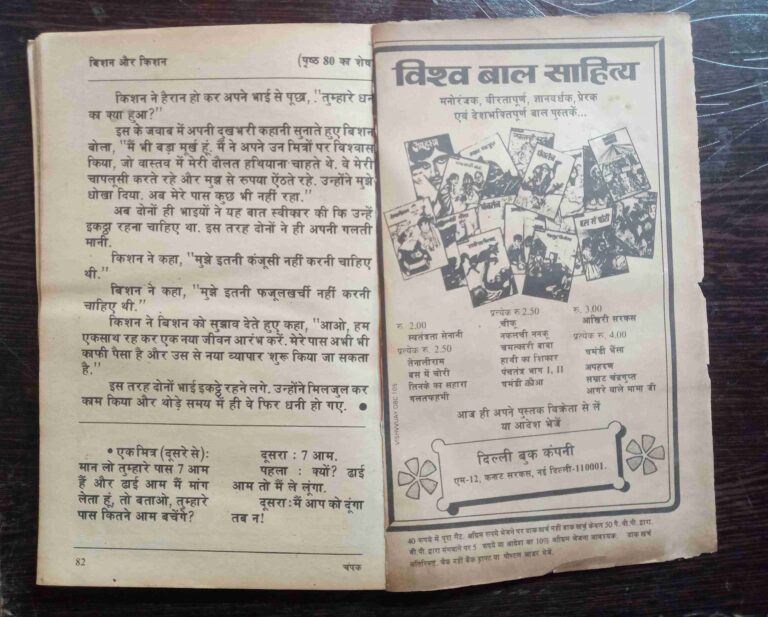 बिशन और किशन
(पृष्ठ 80 का शेष
किशन ने हैरान हो कर अपने भाई से पूछा, "तुम्हारे धन
का क्या हुआ?"
इस के जवाब में अपनी दुखभरी कहानी सुनाते हुए बिशन
बोला, "मैं भी बड़ा मूर्ख हूं. मैं ने अपने उन मित्रों पर विश्वास
किया, जो वास्तव में मेरी दौलत हथियाना चाहते थे. वे मेरी
चापलूसी करते रहे और मुझ से रुपया ऐंठते रहे. उन्होंने मुझे
धोखा दिया. अब मेरे पास कुछ भी नहीं रहा."
अब दोनों ही भाइयों ने यह बात स्वीकार की कि उन्हें
इकट्ठा रहना चाहिए था. इस तरह दोनों ने ही अपनी गलती
मानी.
किशन ने कहा, "मुझे इतनी कंजूसी नहीं करनी चाहिए
थी."
बिशन ने कहा, "मुझे इतनी फजूलखर्ची नहीं करनी
चाहिए थी."
किशन ने बिशन को सुझाव देते हुए कहा, "आओ, हम
एकसाथ रह कर एक नया जीवन आरंभ करें. मेरे पास अभी भी
काफी पैसा है और उस से नया व्यापार शुरू किया जा सकता
है."
इस तरह दोनों भाई इकट्ठे रहने लगे. उन्होंने मिलजुल कर
काम किया और थोड़े समय में ही वे फिर धनी हो गए. ●
● एक मित्र (दूसरे से):
मान लो तुम्हारे पास 7 आम
हैं और ढाई आम मैं मांग
लेता हूं, तो बताओ, तुम्हारे
पास कितने आम बचेंगे?
दूसरा : 7 आम.
पहला : क्यों? ढाई
आम तो मैं ले लूंगा.
दूसरा : मैं आप को दूंगा
तब न!
82
चंपक
विश्व बाल साहित्य
मनोरंजक, वीरतापूर्ण, ज्ञानवर्धक, प्रेरक
एवं देशभक्तिपूर्ण बाल पुस्तकें...
अपहरण
बस में चोरी
रु. 2.00
स्वतंत्रता सेनानी
प्रत्येक रु. 2.50
तेनालीराम
बस में चोरी
तिनके का सहारा
गलतफहमी
प्रत्येक रु. 2.50
चीकू
नकलची ननकू
चमत्कारी बाबा
हाथी का शिकार
पंचतंत्र भाग I, II
घमंडी कौआ
रु. 3.00
आखिरी सरकस
प्रत्येक रु. 4.00
घमंडी भैंसा
अपहरण
सम्राट चंद्रगुप्त
आगरे वाले मामा जी
आज ही अपने पुस्तक विक्रेता से लें
या आदेश भेजें
दिल्ली बुक कंपनी
एम-12, कनाट सरकस, नई दिल्ली-110001.
40 रुपये में पूरा सैट. अग्रिम रुपये भेजने पर डाक खर्च नहीं डाक खर्च केवल 50 पै. वी.पी. द्वारा.
वी.पी. द्वारा मंगवाने पर 5 रुपये या आदेश का 10% अग्रिम भेजना आवश्यक. डाक खर्च
अतिरिक्त. चैक नहीं बैंक ड्राफ्ट या पोस्टल आर्डर भेजें.